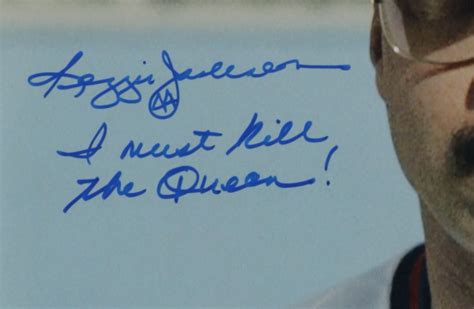 Reggie Jackson
I must Kill
The Queen!